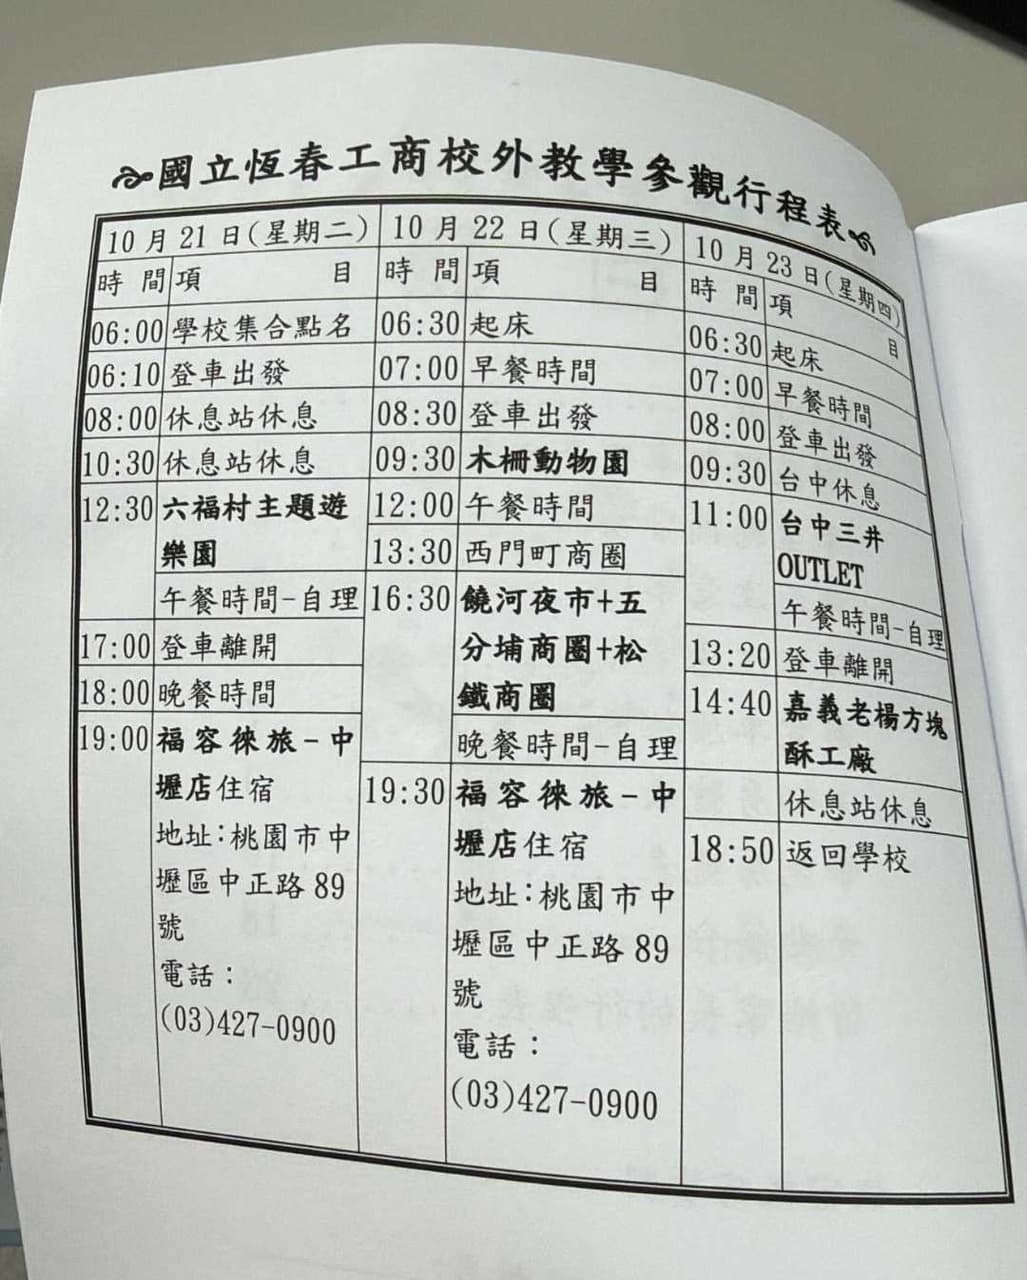 國立恆春工商校外教學參觀行程表
10月21日(星期二)
時間 項目
06:00 學校集合點名
06:10 登車出發
08:00 休息站休息
10:30 休息站休息
12:30 六福村主題遊
樂園
午餐時間-自理
17:00 登車離開
18:00 晚餐時間
19:00 福容徠旅-中
壢店住宿
地址:桃園市中
壢區中正路89
號
電話:
(03)427-0900
10月22日(星期三)
時間 項目
06:30 起床
07:00 早餐時間
08:30 登車出發
09:30 木柵動物園
12:00 午餐時間
13:30 西門町商圈
16:30 饒河夜市+五
分埔商圈+松
鐵商圈
晚餐時間-自理
19:30 福容徠旅-中
壢店住宿
地址:桃園市中
壢區中正路89
號
電話:
(03)427-0900
10月23日(星期四)
時間 項目
06:30 起床
07:00 早餐時間
08:00 登車出發
09:30 台中休息
11:00 台中三井
OUTLET
午餐時間-自理
13:20 登車離開
14:40 嘉義老楊方塊
酥工廠
休息站休息
18:50 返回學校